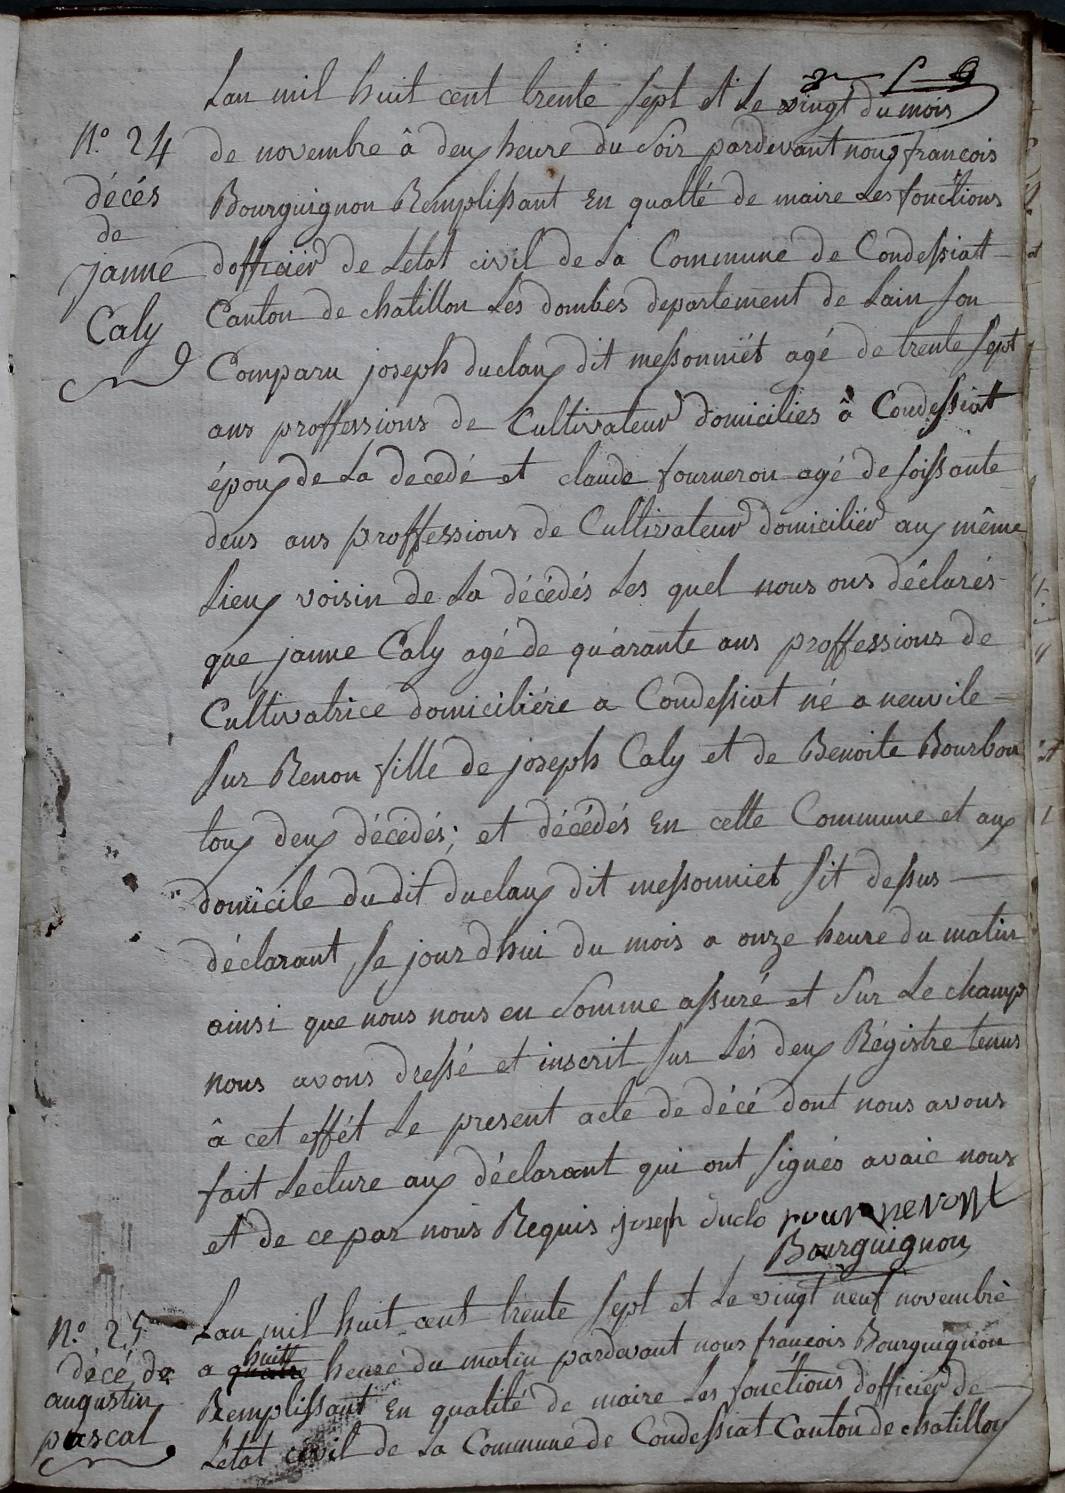 Lan mil huit cent trente sept et le vingt du mois
N.o 24
décés
de
janne
Caly
de novembre â deux heure du soir pardevant nous francois
Bourguignon Remplissant En qualté de maire Les fonctions
dofficier de Letat civil de La Commune de Condessiat
Canton de chatillon Les dombes departement de Lain son
Comparu joseph duclaux dit messonniét agé de trente sept
ans proffessions de Cultivateur domicilies â Condessiat
époux de La decedé et claude fourneron agé de soissante
deus ans proffessions de Cultivateur domiciliér aux même
Lieux voisin de La décédés Les quel nous ons déclarés
que janne Caly agé de quarante ans proffessions de
Cultivatrice domiciliére a Condessiat né a neuvile
sur Renon fille de joseph Caly et de Benoite Bourbon
toux deux décédés; et décédés En cette Commune et aux
domicile du dit duclaux dit messonniet sit dessus
déclarant, se jour dhui du mois a onze heure du matin
ainsi que nous nous en somme assuré et sur Le champ
nous avons dressé et inscrit sur Lés deux Régistre tenus
â cet effét Le present acte de décé dont nous avons
fait Lecture aux déclarant qui ont signés avaic nous
et de ce par nous Requis joseph duclo fourneront
Bourguignon
N.o 25
décé de
augustin
pascal
Lan mil huit cent trente sept et Le vingt neuf novembre
a quatre huit heure du matin pardevant nous françois Bourguignon
Remplissant En qualité de maire Les fonctions dofficier de
Letat civil de La Commune de Condessiat Canton de chatillon